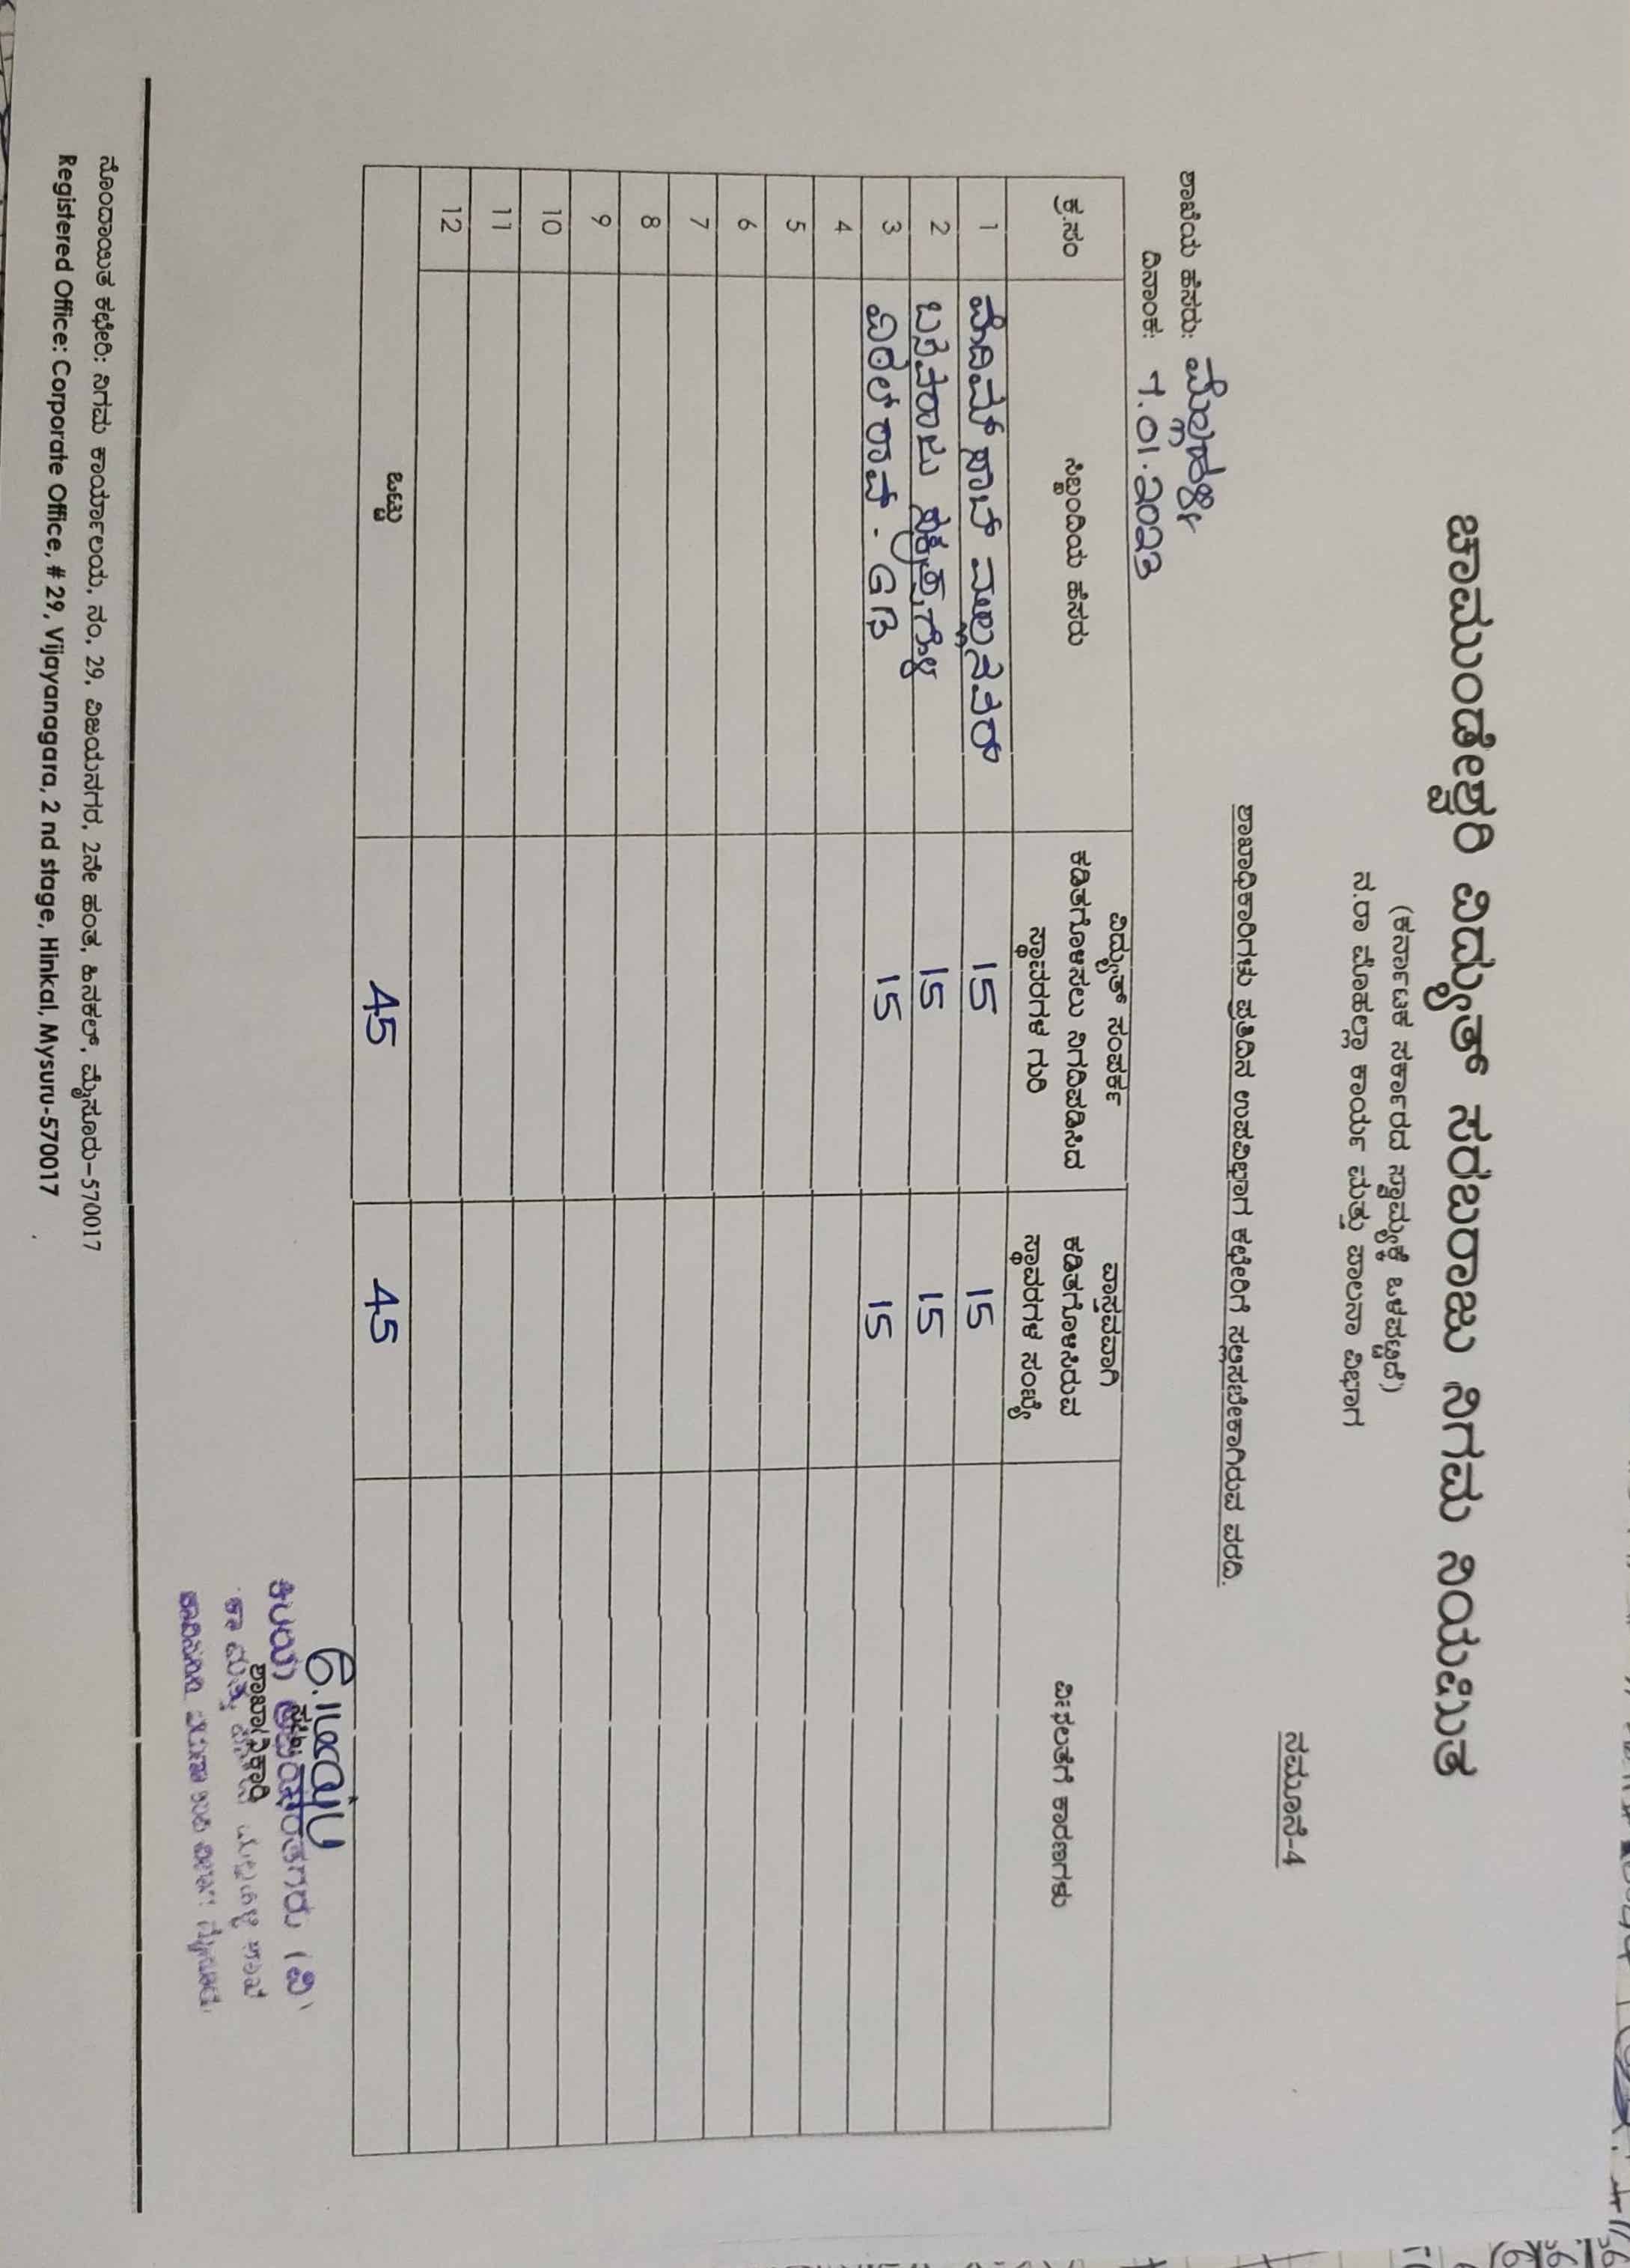 ಚಾಮುಂಡೇಶ್ವರಿ ವಿದ್ಯುತ್ ಸರಬರಾಜು ನಿಗಮ ನಿಯಮಿತ
(ಕರ್ನಾಟಕ ಸರ್ಕಾರದ ಸ್ವಾಮ್ಯಕ್ಕೆ ಒಳಪಟ್ಟಿದೆ)
ನ.ರಾ ಮೊಹಲ್ಲಾ ಕಾರ್ಯ ಮತ್ತು ಪಾಲನಾ ವಿಭಾಗ
ನಮೂನೆ-4
ಶಾಖಾಧಿಕಾರಿಗಳು ಪ್ರತಿದಿನ ಉಪವಿಭಾಗ ಕಛೇರಿಗೆ ಸಲ್ಲಿಸಬೇಕಾಗಿರುವ ವರದಿ.
ಶಾಖೆಯ ಹೆಸರು:
ದಿನಾಂಕ: 7.01.2023
ಕ್ರ.ಸಂ ಸಿಬ್ಬಂದಿಯ ಹೆಸರು ವಿದ್ಯುತ್ ಸಂಪರ್ಕ ಕಡಿತಗೊಳಿಸಲು ನಿಗದಿಪಡಿಸಿದ ಸ್ಥಾವರಗಳ ಗುರಿ ವಾಸ್ತವವಾಗಿ ಕಡಿತಗೊಳಿಸಿರುವ ಸ್ಥಾವರಗಳ ಸಂಖ್ಯೆ ವಿಫಲತೆಗೆ ಕಾರಣಗಳು
1 15 15
2 ಬಸವರಾಜು 15 15
3 ವಿಠಲ್ ರಾವ್. GB 15 15
4
5
6
7
8
9
10
11
12
ಒಟ್ಟು 45 45
ಶಾಖಾಧಿಕಾರಿ
ನೊಂದಾಯಿತ ಕಛೇರಿ: ನಿಗಮ ಕಾರ್ಯಾಲಯ, ನಂ, 29, ವಿಜಯನಗರ, 2ನೇ ಹಂತ, ಹಿನಕಲ್, ಮೈಸೂರು-570017
Registered Office: Corporate Office, # 29, Vijayanagara, 2 nd stage, Hinkal, Mysuru-570017